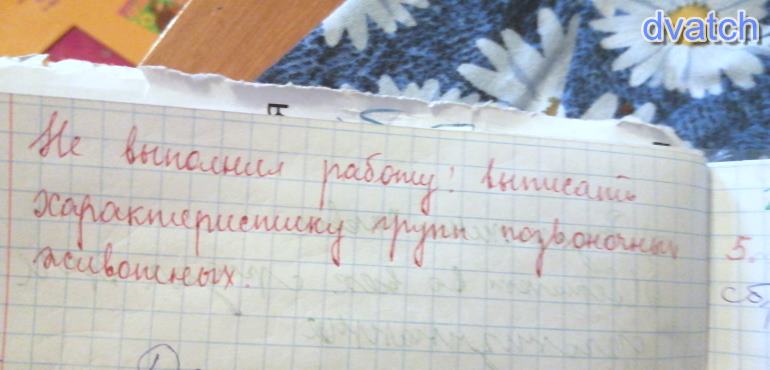 dvatch
Не выполнил работу: выписать
характеристику групп позвоночных
животных.
5.
сб